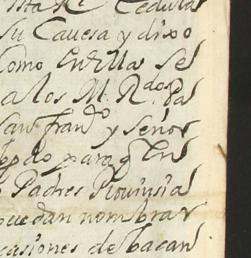 ista Rl Cedula
su Cavesa y dixo
Como en ellas se
a los M. Rdos Pa
San Franco y señor
para q En
Padres Prouinsia
puedan nombrar
casiones de bacan